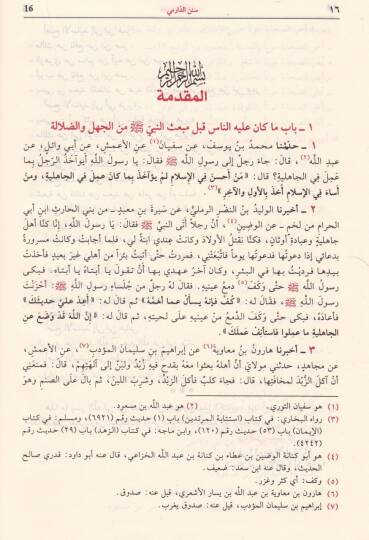 ١٦
سنن الدارمي
16
بسم الله الرحمن الرحيم
المقدمة
١ ـ باب ما كان عليه الناس قبل مبعث النبيّ ﷺ من الجهل والضلالة
١ ـ حدّثنا محمدُ بنُ يوسفَ، عن سفيانَ(١) عنِ الأعمشِ، عن أبي وائلٍ، عن
عبدِ اللَّهِ(٢)، قال: جاءَ رجلٌ إلى رسولِ اللَّهِ ﷺ فقال: يا رسولَ اللَّهِ أيؤاخَذُ الرّجلُ بما
عَمِلَ في الجاهليةِ؟ قال: «مَنْ أحسنَ في الإسلامِ لمْ يؤاخَذْ بما كانَ عمِلَ في الجاهليةِ، ومنْ
أساءَ في الإسلامِ أُخذَ بالأولِ والآخرِ»(٣).
٢ ـ أخبرنا الوليدُ بنُ النضْرِ الرمليُّ، عن سَبرةَ بنِ معبدٍ ـ من بني الحارثِ ابنِ أبي
الحرامِ من لخمٍ ـ عن الوضِينِ(٤)، أنَّ رجلاً أتى النبيَّ ﷺ فقال: يا رسولَ اللَّهِ، إنّا كنّا أهلَ
جاهليةٍ وعبادةِ أوثانٍ، فكنّا نقتلُ الأولادَ وكانتْ عندي ابنةٌ لي، فلما أجابتْ وكانتْ مسرورةً
بدعائي إذا دعوتُها فدعوتُها يوماً فاتَّبَعَتْني، فمررتُ حتى أتيتُ بئراً من أهلي غيرَ بعيدٍ فأخذتُ
بيدِها فردّيتُ بها في البئرِ، وكان آخرُ عهدي بها أنْ تقولَ يا أبتاهُ يا أبتاه. فبكى
رسولُ اللَّهِ ﷺ حتى وَكَفَ(٥) دمعُ عينيهِ. فقالَ لهُ رجلٌ منْ جُلساءِ رسولِ اللَّهِ: أحزنْتَ
رسولَ اللَّهِ ﷺ، فقالَ له: «كُفَّ فإنَّه يسألُ عما أهمَّهُ» ثم قالَ له: «أعِدْ عليَّ حديثَكَ»
فأعادَهُ، فبكى حتى وكَفَ الدَّمعُ منْ عينيهِ على لحيتِهِ، ثم قالَ له: «إنَّ اللَّهَ قَدْ وضَعَ عنِ
الجاهليةِ ما عملوا فاستأنِفْ عملَكَ».
٣ ـ أخبرنا هارونُ بنُ معاويةَ(٦) عن إبراهيمَ بنِ سليمانَ المؤدبِ(٧)، عن الأعمشِ،
عن مجاهدٍ، حدثني مولايَ أنّ أهلَهُ بعثوا معَهُ بقدحٍ فيهِ زُبْدٌ ولبَنٌ إلى آلهتِهِمْ، قالَ: فمنعَني
أنْ آكلَ الزُّبْدَ لمخافَتِها، قال: فجاءَ كلبٌ فأكلَ الزبْدَ، وشربَ اللبنَ، ثم بالَ على الصنمِ وهوَ
(١) هو سفيان الثوري. (٢) هو عبد اللَّه بن مسعود.
(٣) رواه البخاري: في كتاب (استتابة المرتدين) باب (١) حديث رقم (٦٩٢١)، ومسلم: في كتاب
(الإيمان) باب (٥٣) حديث رقم (١٢٠)، وابن ماجه: في كتاب (الزهد) باب (٢٩) حديث رقم
(٤٢٤٢).
(٤) هو أبو كنانة الوضين بن عطاء بن كنانة بن عبد اللَّه الخزاعي، قال عنه أبو داود: قدري صالح
الحديث، وقال عنه ابن سعد: ضعيف.
(٥) وكف: أي كثر وغزر.
(٦) هارون بن معاوية بن عبد اللَّه بن يسار الأشعري، قيل عنه: صدوق.
(٧) إبراهيم بن سليمان المؤدب، قيل عنه: صدوق يغرب.